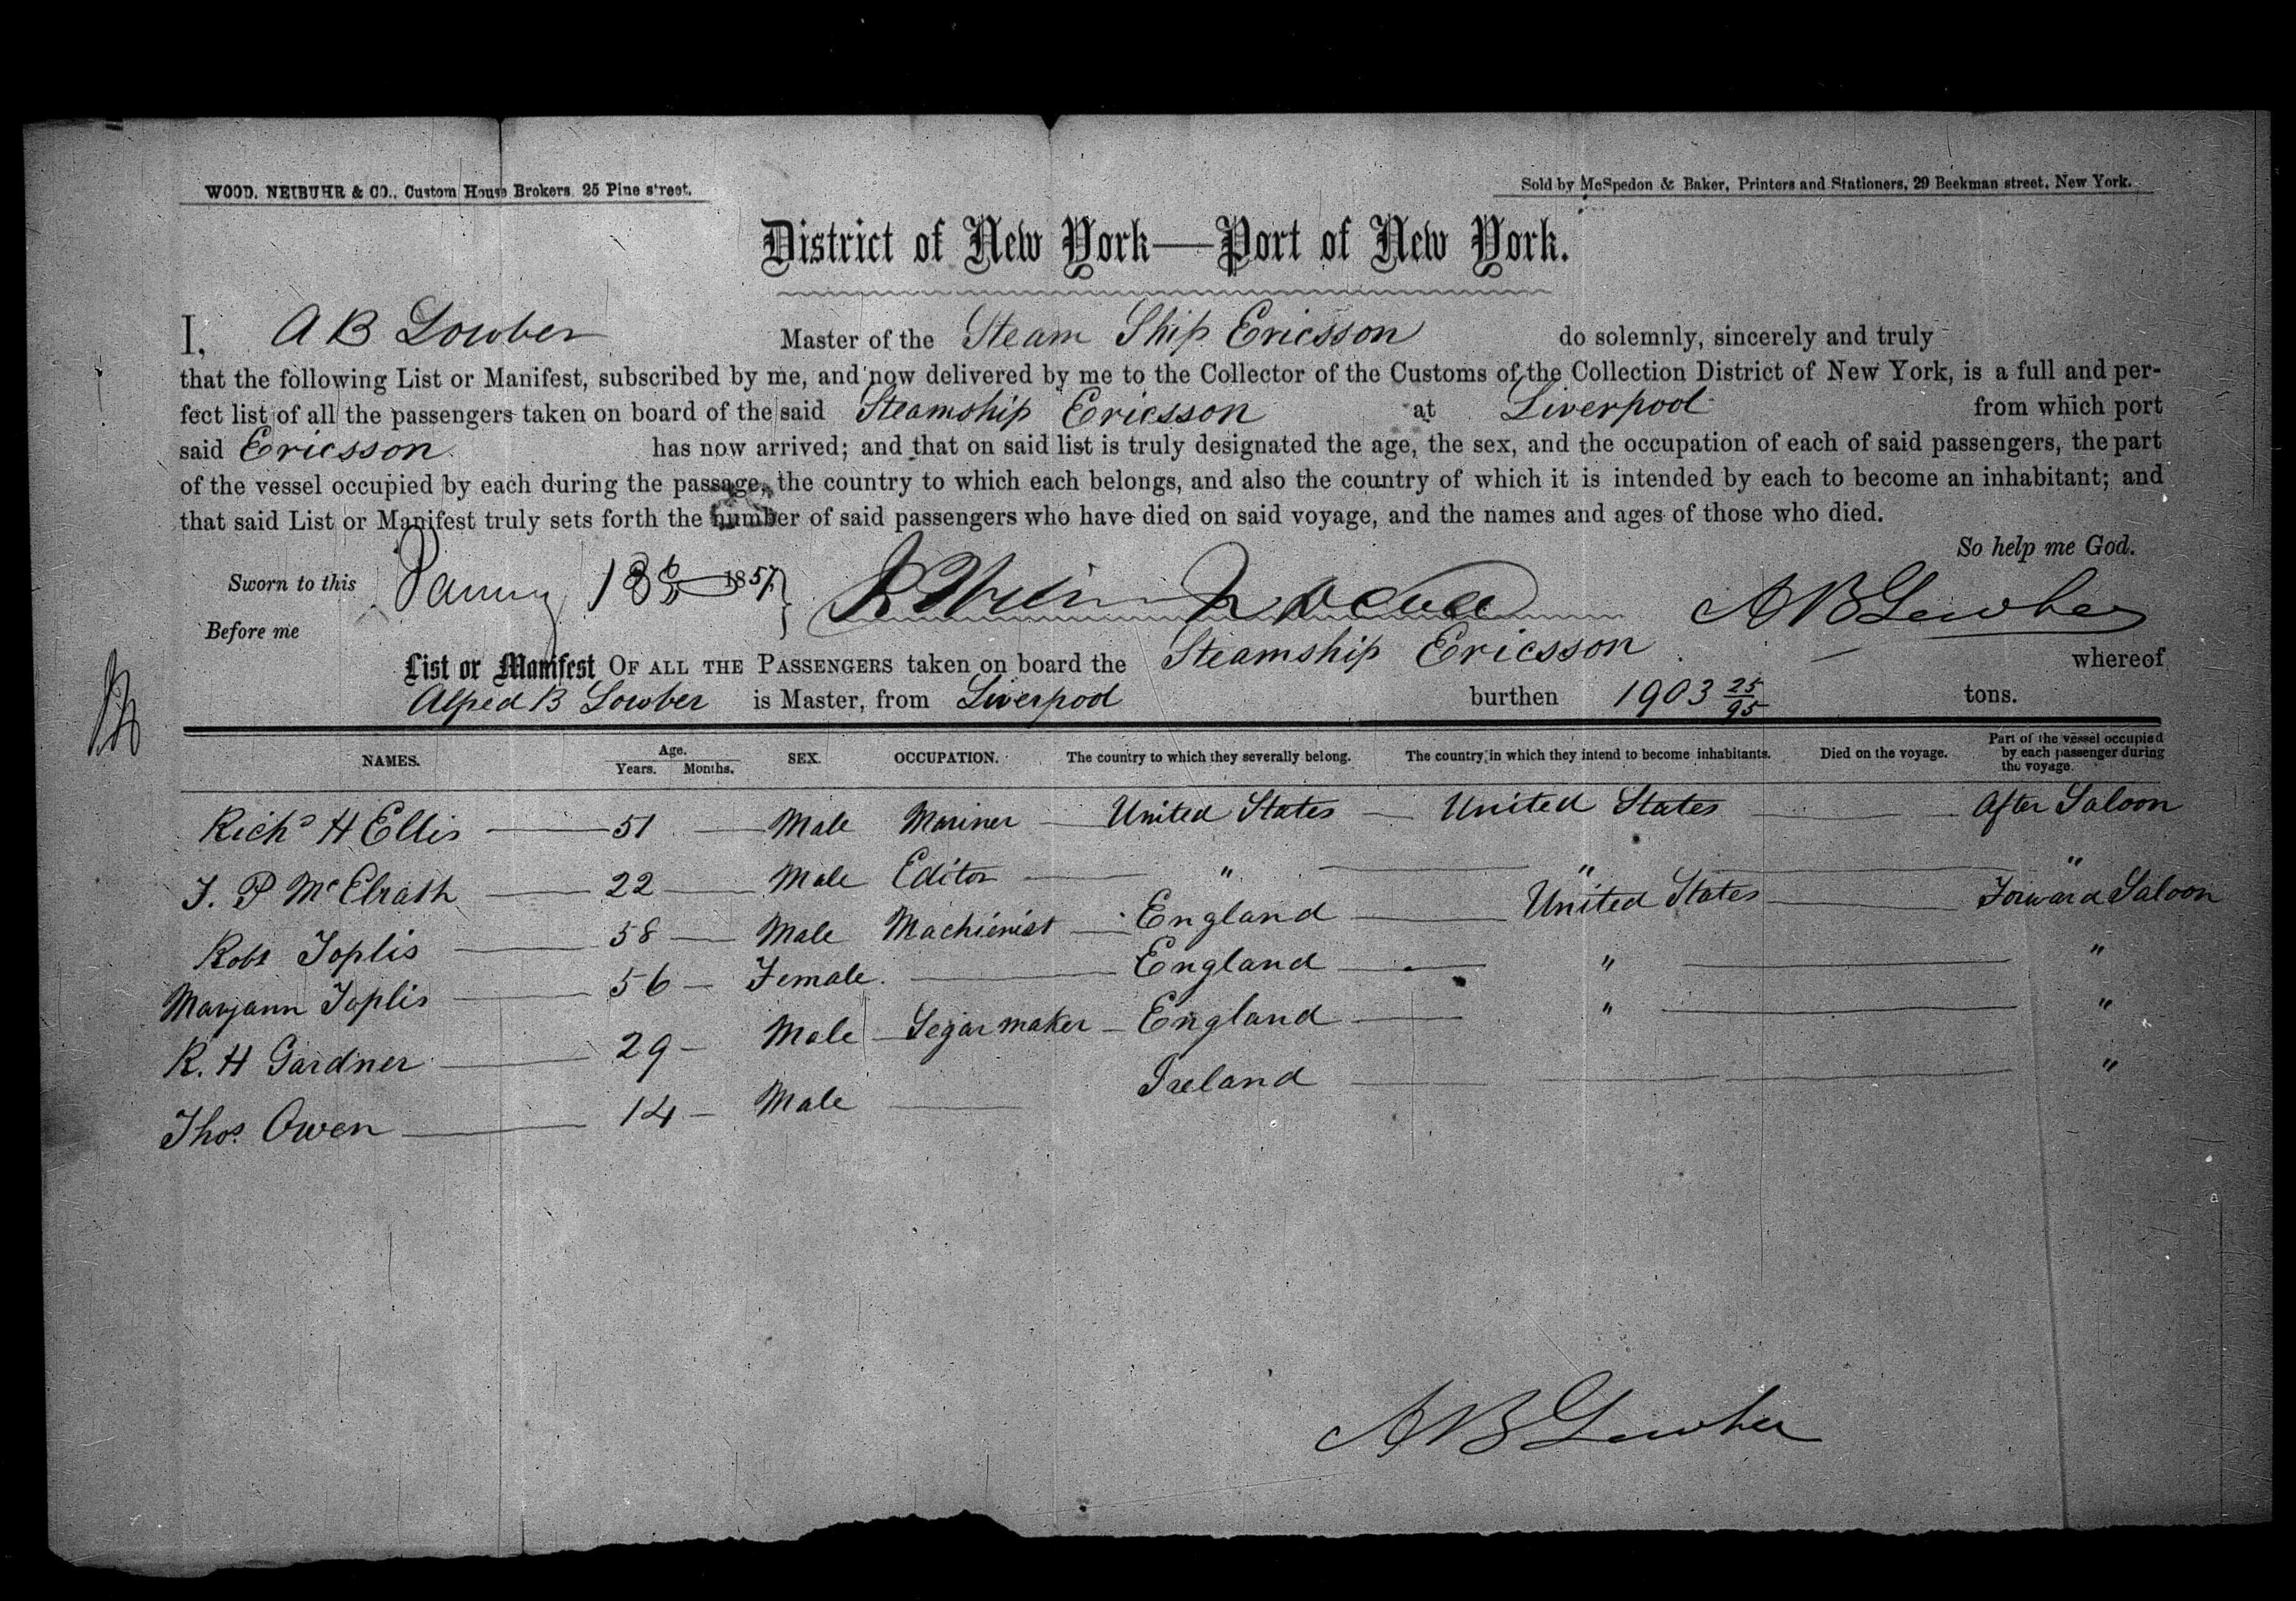 WOOD, NEIBUHR & CO., Custom House Brokers, 25 Pine street.
Sold by McSpedon & Baker, Printers and Stationers, 29 Beekman street, New York.
District of New York—Port of New York.
I, A B Lowber Master of the Steam Ship Ericsson do solemnly, sincerely and truly
that the following List or Manifest, subscribed by me, and now delivered by me to the Collector of the Customs of the Collection District of New York, is a full and per-
fect list of all the passengers taken on board of the said Steamship Ericsson at Liverpool from which port
said Ericsson has now arrived; and that on said list is truly designated the age, the sex, and the occupation of each of said passengers, the part
of the vessel occupied by each during the passage, the country to which each belongs, and also the country of which it is intended by each to become an inhabitant; and
that said List or Manifest truly sets forth the number of said passengers who have died on said voyage, and the names and ages of those who died.
So help me God.
Sworn to this 1857
Before me
A B Lowber
List or Manifest OF ALL THE PASSENGERS taken on board the Steamship Ericsson whereof
Alfred B Lowber is Master, from Liverpool burthen 1903 25/95 tons.
NAMES. Age. Years. Months. SEX. OCCUPATION. The country to which they severally belong. The country in which they intend to become inhabitants. Died on the voyage. Part of the vessel occupied by each passenger during the voyage.
Richd H Ellis 51 Male Mariner United States United States After Saloon
J. P McElrath 22 Male Editor " " "
Robt Toplis 58 Male Machienist England United States Forward Saloon
Maryann Toplis 56 Female England " "
R. H Gardner 29 Male Segar maker England " "
Thos. Owen 14 Male Ireland "
A B Lowber